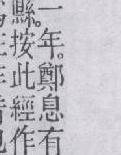 一年。鄭息有
縣。按此經作